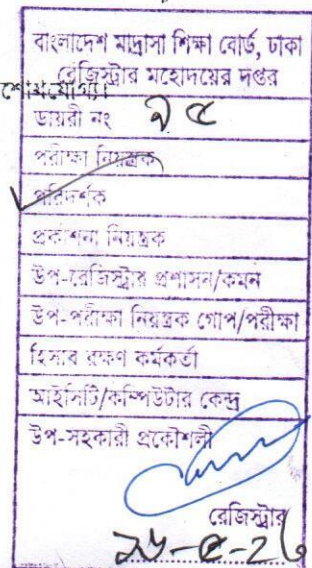 বাংলাদেশ মাদ্রাসা শিক্ষা বোর্ড, ঢাকা
রেজিস্ট্রার মহোদয়ের দপ্তর
ডায়রী নং ৯৫
পরীক্ষা নিয়ন্ত্রক
পরিদর্শক
প্রকাশনা নিয়ন্ত্রক
উপ-রেজিস্ট্রার প্রশাসন/কমন
উপ-পরীক্ষা নিয়ন্ত্রক গোপ/পরীক্ষা
হিসাব রক্ষণ কর্মকর্তা
আইসিটি/কম্পিউটার কেন্দ্র
উপ-সহকারী প্রকৌশলী
রেজিস্ট্রার